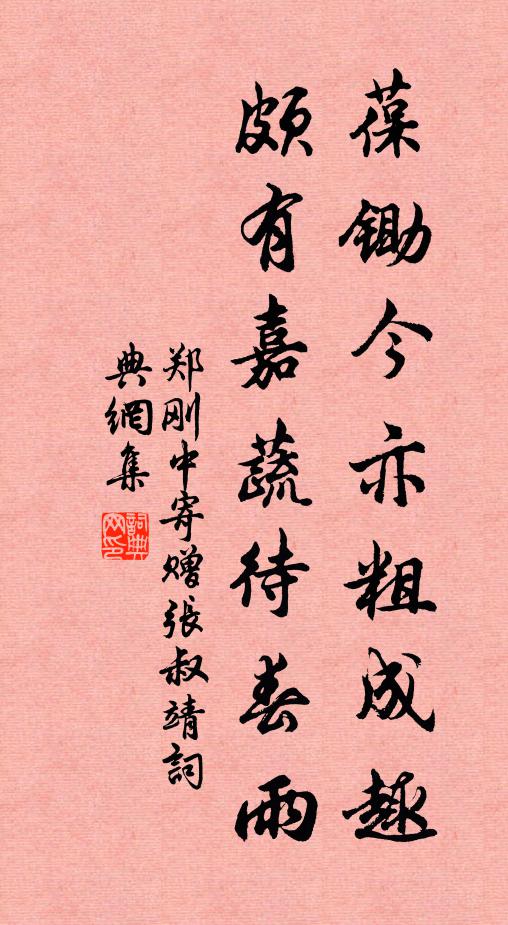 葆锄今亦粗成趣
颇有嘉蔬待春雨
郑刚中寄赠張叔靖詞
典網集
詞典網印